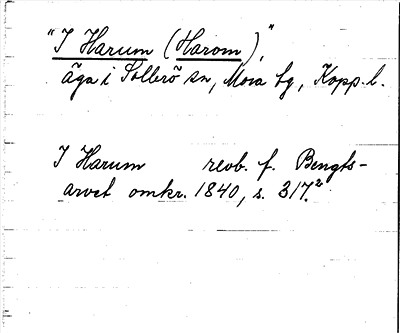 "I Harum (Harom),"
äga i Sollerö sn, Mora tg, Kopp. l.
I Harum reob. f. Bengts-
arvet omkr. 1840, s. 317.²